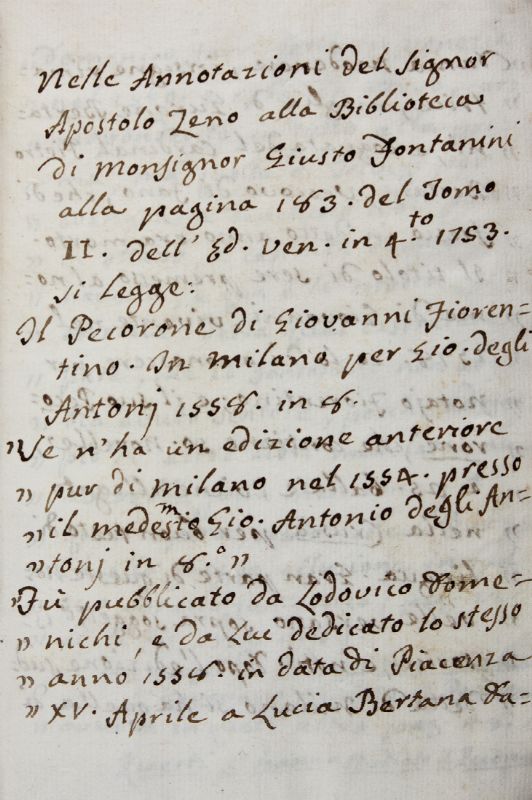 Nelle Annotazioni del Signor
Apostolo Zeno alla Biblioteca
di Monsignor Giusto Fontanini
alla pagina 183. del Tomo
II. dell' Ed. Ven. in 4.to 1753.
si legge:
Il Pecorone di Giovanni Fioren=
tino. In Milano per Gio. degli
Antonj 1558. in 8.
"Ve n'ha un edizione anteriore
" pur di Milano nel 1554. presso
" il medesmo Gio. Antonio degli An=
" tonj in 8.° "
"Fù pubblicato da Lodovico Dome=
" nichi, e da Lui dedicato lo stesso
" anno 1558. in data di Piacenza
" XV. Aprile a Lucia Bertana Da=